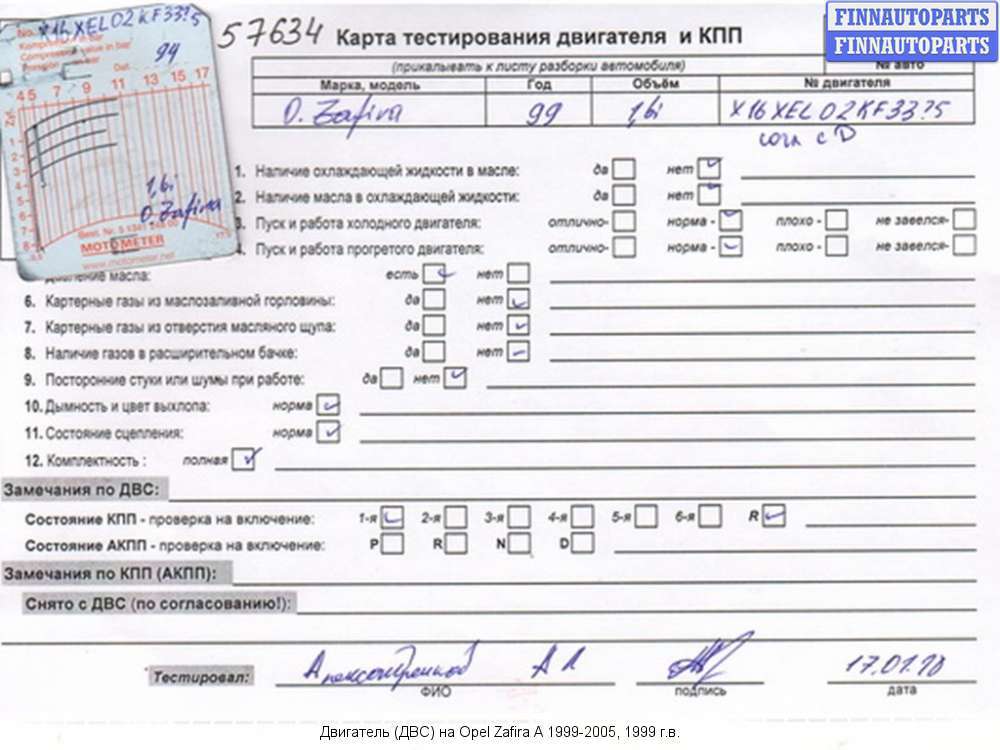 FINNAUTOPARTS
FINNAUTOPARTS
57634 Карта тестирования двигателя и КПП
(прикалывать к листу разборки автомобиля) № авто
Марка, модель Год Объём № двигателя
O. Zafira 99 1,6i X16XEL02KF33?5
согл с D
No. X16XEL02KF33?5
Compression value in bar
99
4 5 7 9 11 13 15 17
1,6i
O. Zafira
MOTOMETER
www.motometer.net
1. Наличие охлаждающей жидкости в масле: да нет
2. Наличие масла в охлаждающей жидкости: да нет
3. Пуск и работа холодного двигателя: отлично- норма - плохо - не завелся-
4. Пуск и работа прогретого двигателя: отлично- норма - плохо - не завелся-
масла: есть нет
6. Картерные газы из маслозаливной горловины: да нет
7. Картерные газы из отверстия масляного щупа: да нет
8. Наличие газов в расширительном бачке: да нет
9. Посторонние стуки или шумы при работе: да нет
10. Дымность и цвет выхлопа: норма
11. Состояние сцепления: норма
12. Комплектность : полная
Замечания по ДВС:
Состояние КПП - проверка на включение: 1-я 2-я 3-я 4-я 5-я 6-я R
Состояние АКПП - проверка на включение: P R N D
Замечания по КПП (АКПП):
Снято с ДВС (по согласованию!):
Тестировал: А Л 17.01.18
ФИО подпись дата
Двигатель (ДВС) на Opel Zafira A 1999-2005, 1999 г.в.